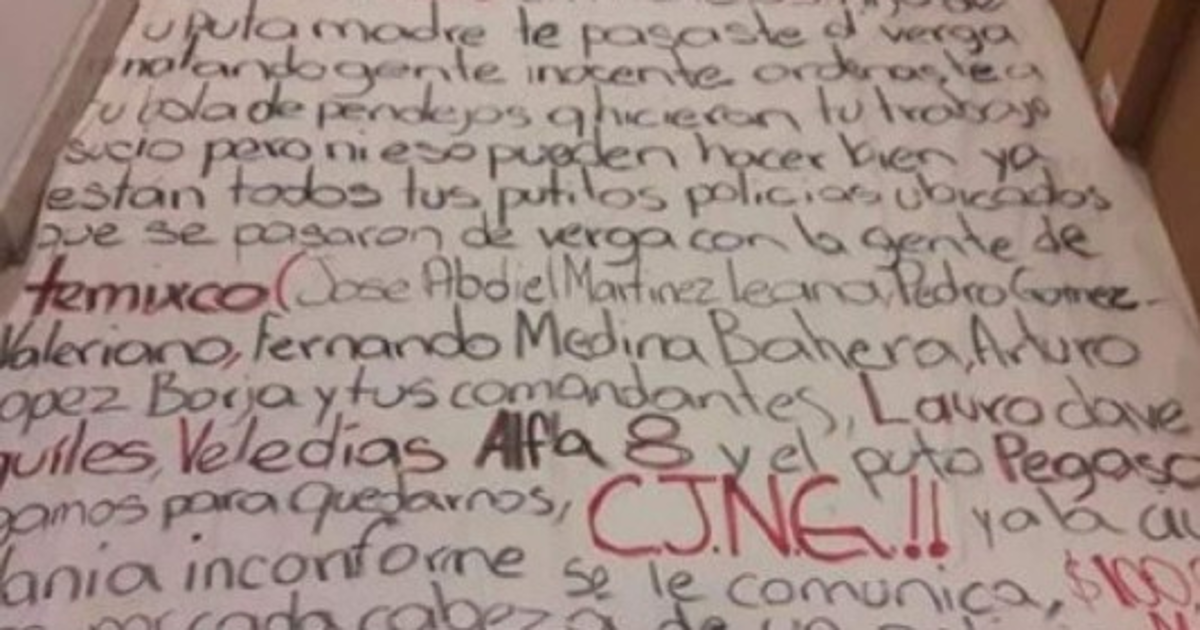 puta madre te pasaste d' verga
matando gente inocente ordenastea
tu bola de pendejos q hicieran tu trabajo
sucio pero ni eso pueden hacer bien ya
estan todos tus putitos policias ubicados
que se pasaron de verga con la gente de
temixco (Jose Abdiel Martinez leana, Pedro Gomez-
Valeriano, Fernando Medina Bahera, Arturo
opez Borja y tus comandantes, Lauro clave
quiles, Veledias Alfa 8 y el puto Pegaso
gamos para quedarnos, C.J.N.G.!! ya la ciu
dania inconforme se le comunica, $100
cabeza de un